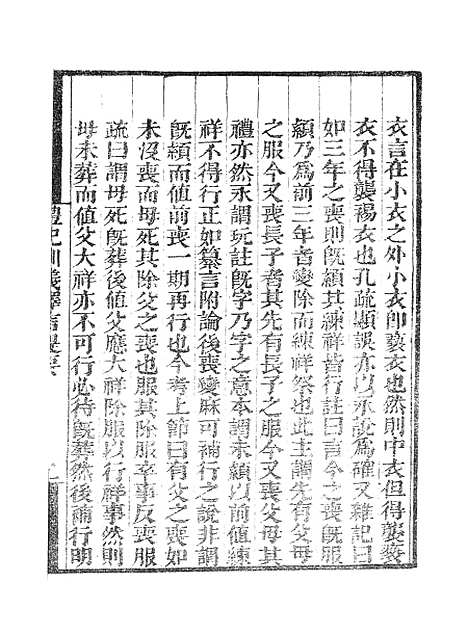 衣言在小衣之外小衣卽褻衣也然則中衣但得襲裘
衣不得襲裼衣也孔疏顯誤亦以永說爲確又雜記曰
如三年之喪則旣顈其練祥皆行註曰言今之喪旣服
顈乃爲前三年者變除而練祥祭也此主謂先有父母
之服今又喪長子者其先有長子之服今又喪父母其
禮亦然永謂玩註旣字乃字之意本謂未顈以前值練
祥不得行正如纂言附論後喪變麻可補行之說非謂
旣顈而值前喪一期再行也今考上節曰有父之喪如
未沒喪而母死其除父之喪也服其除服卒事反喪服
疏曰謂母死旣葬後值父應大祥除服以行祥事然則
母未葬而值父大祥亦不可行必待旣葬然後補行明
禮記訓義擇言提要